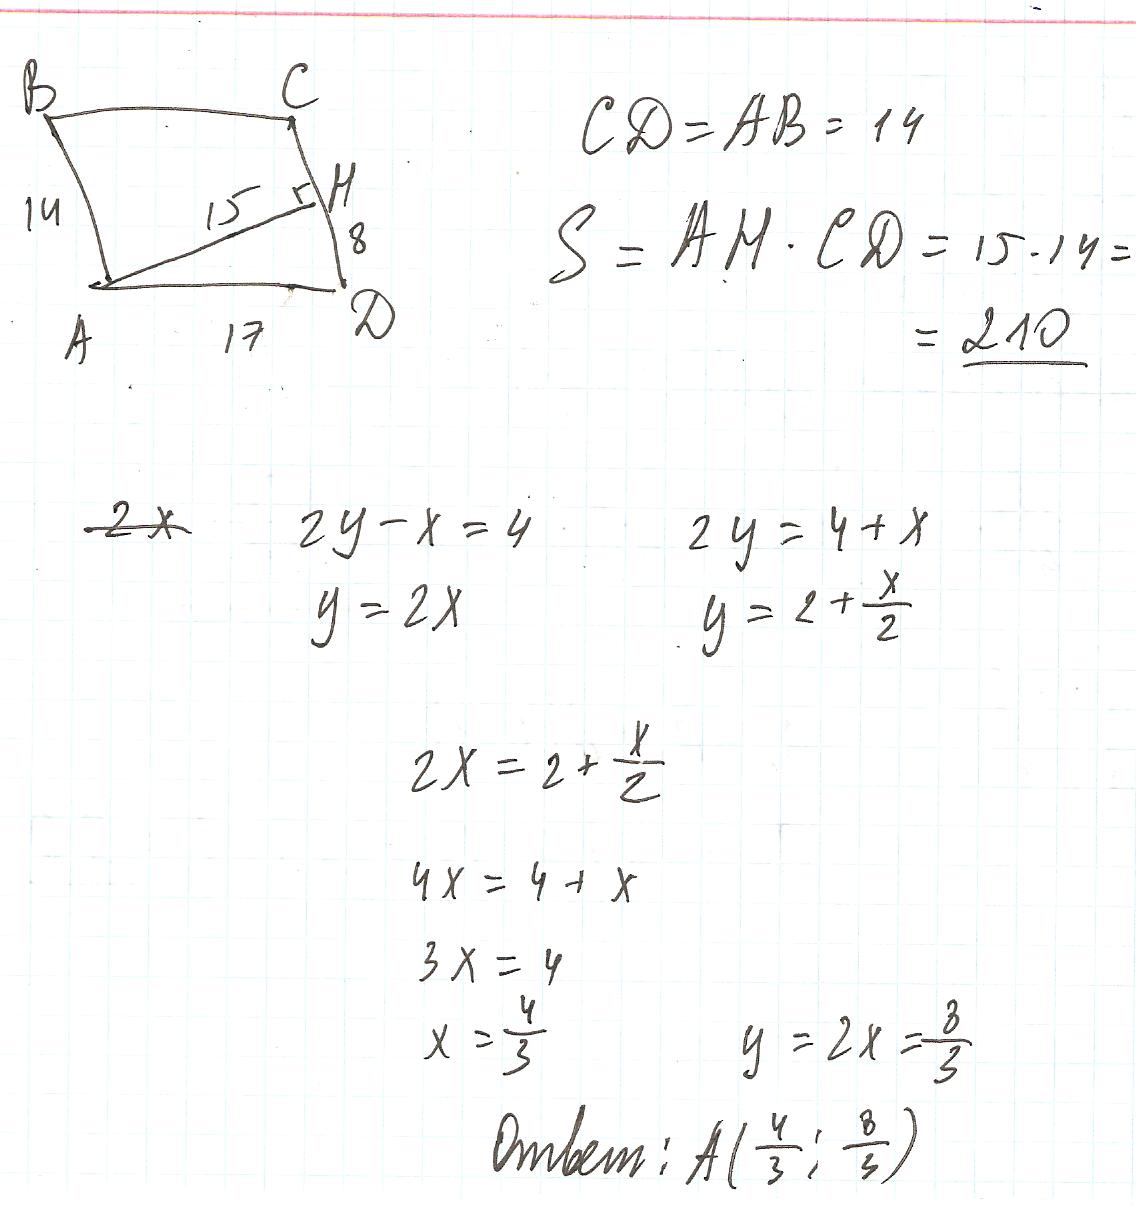 B C
14 15 H
8
A 17 D
CD = AB = 14
S = AH · CD = 15 · 14 =
= 210
2x 2y - x = 4 2y = 4 + x
y = 2x y = 2 + x/2
2x = 2 + x/2
4x = 4 + x
3x = 4
x = 4/3 y = 2x = 8/3
Ответ: A(4/3; 8/3)